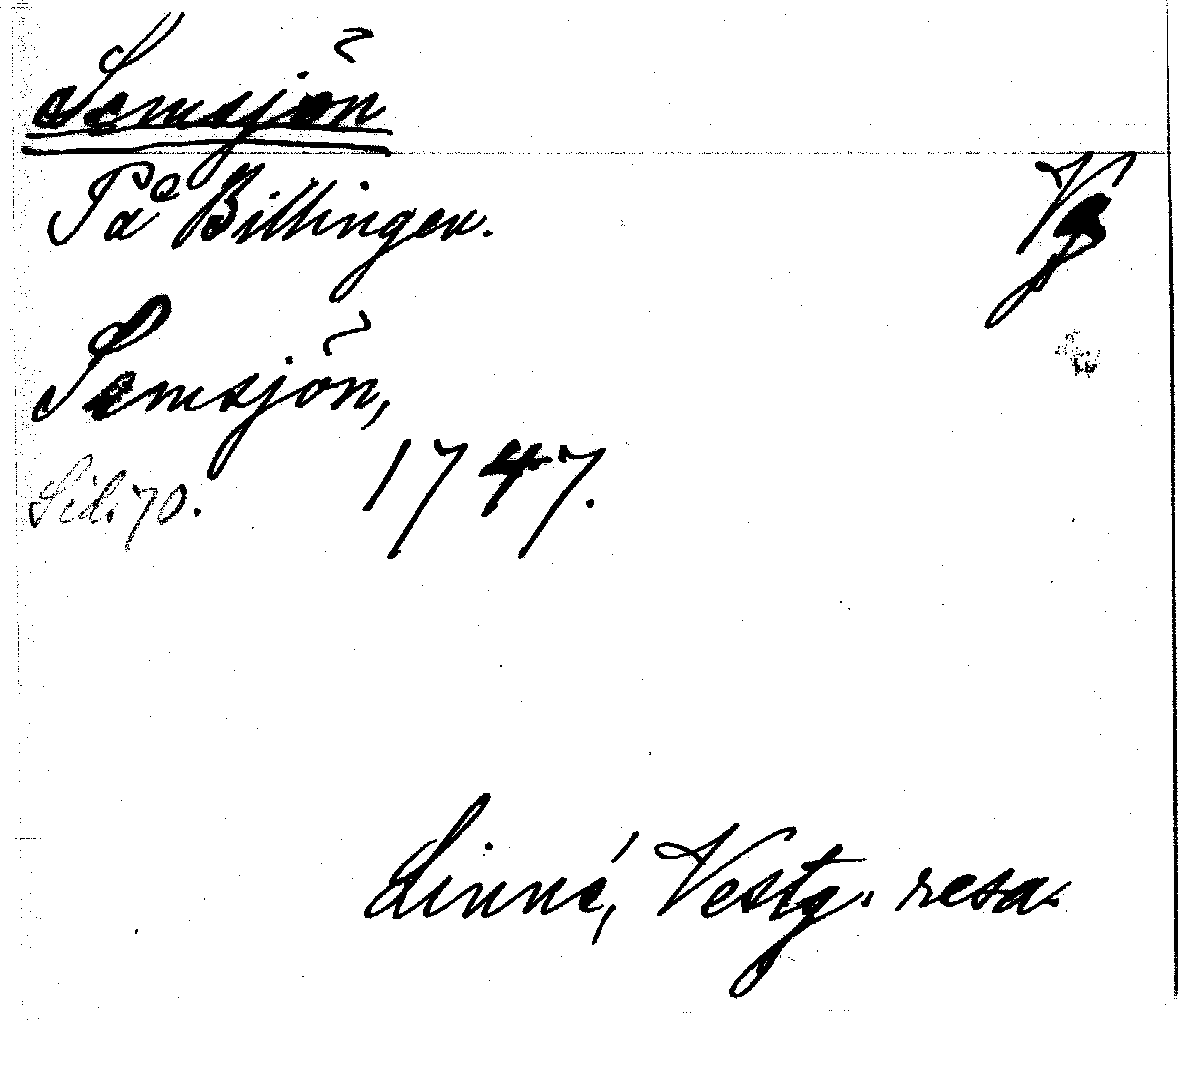 Semsjön
På Billingen.
Vg
Semsjön,
Sid. 70.
1747.
Linné, Vestg. resa.